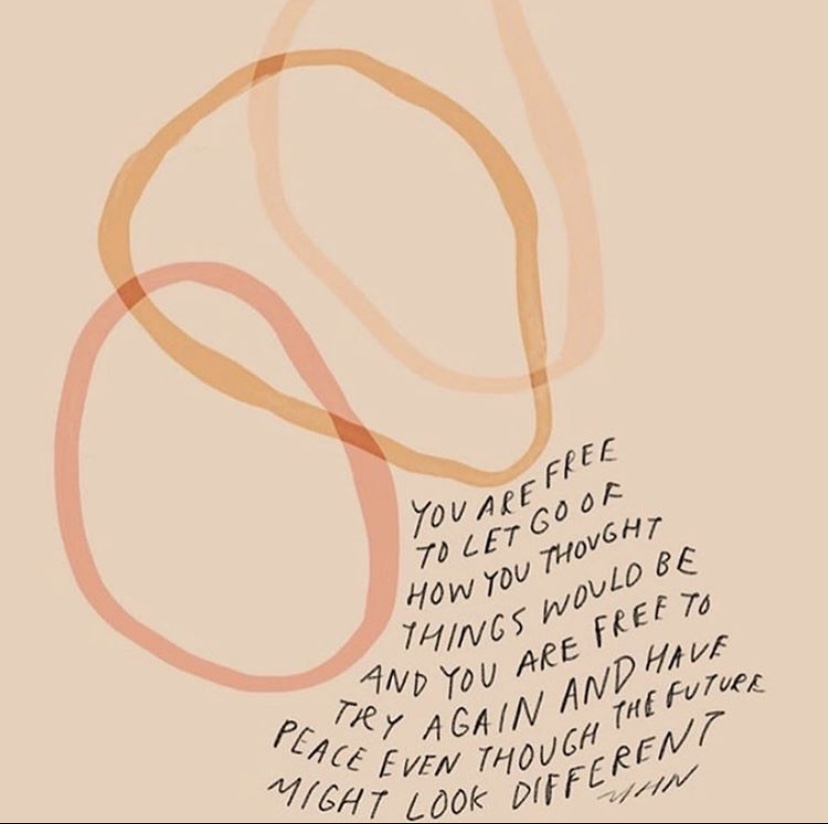 YOU ARE FREE
TO LET GO OF
HOW YOU THOUGHT
THINGS WOULD BE
AND YOU ARE FREE TO
TRY AGAIN AND HAVE
PEACE EVEN THOUGH THE FUTURE
MIGHT LOOK DIFFERENT
MHN